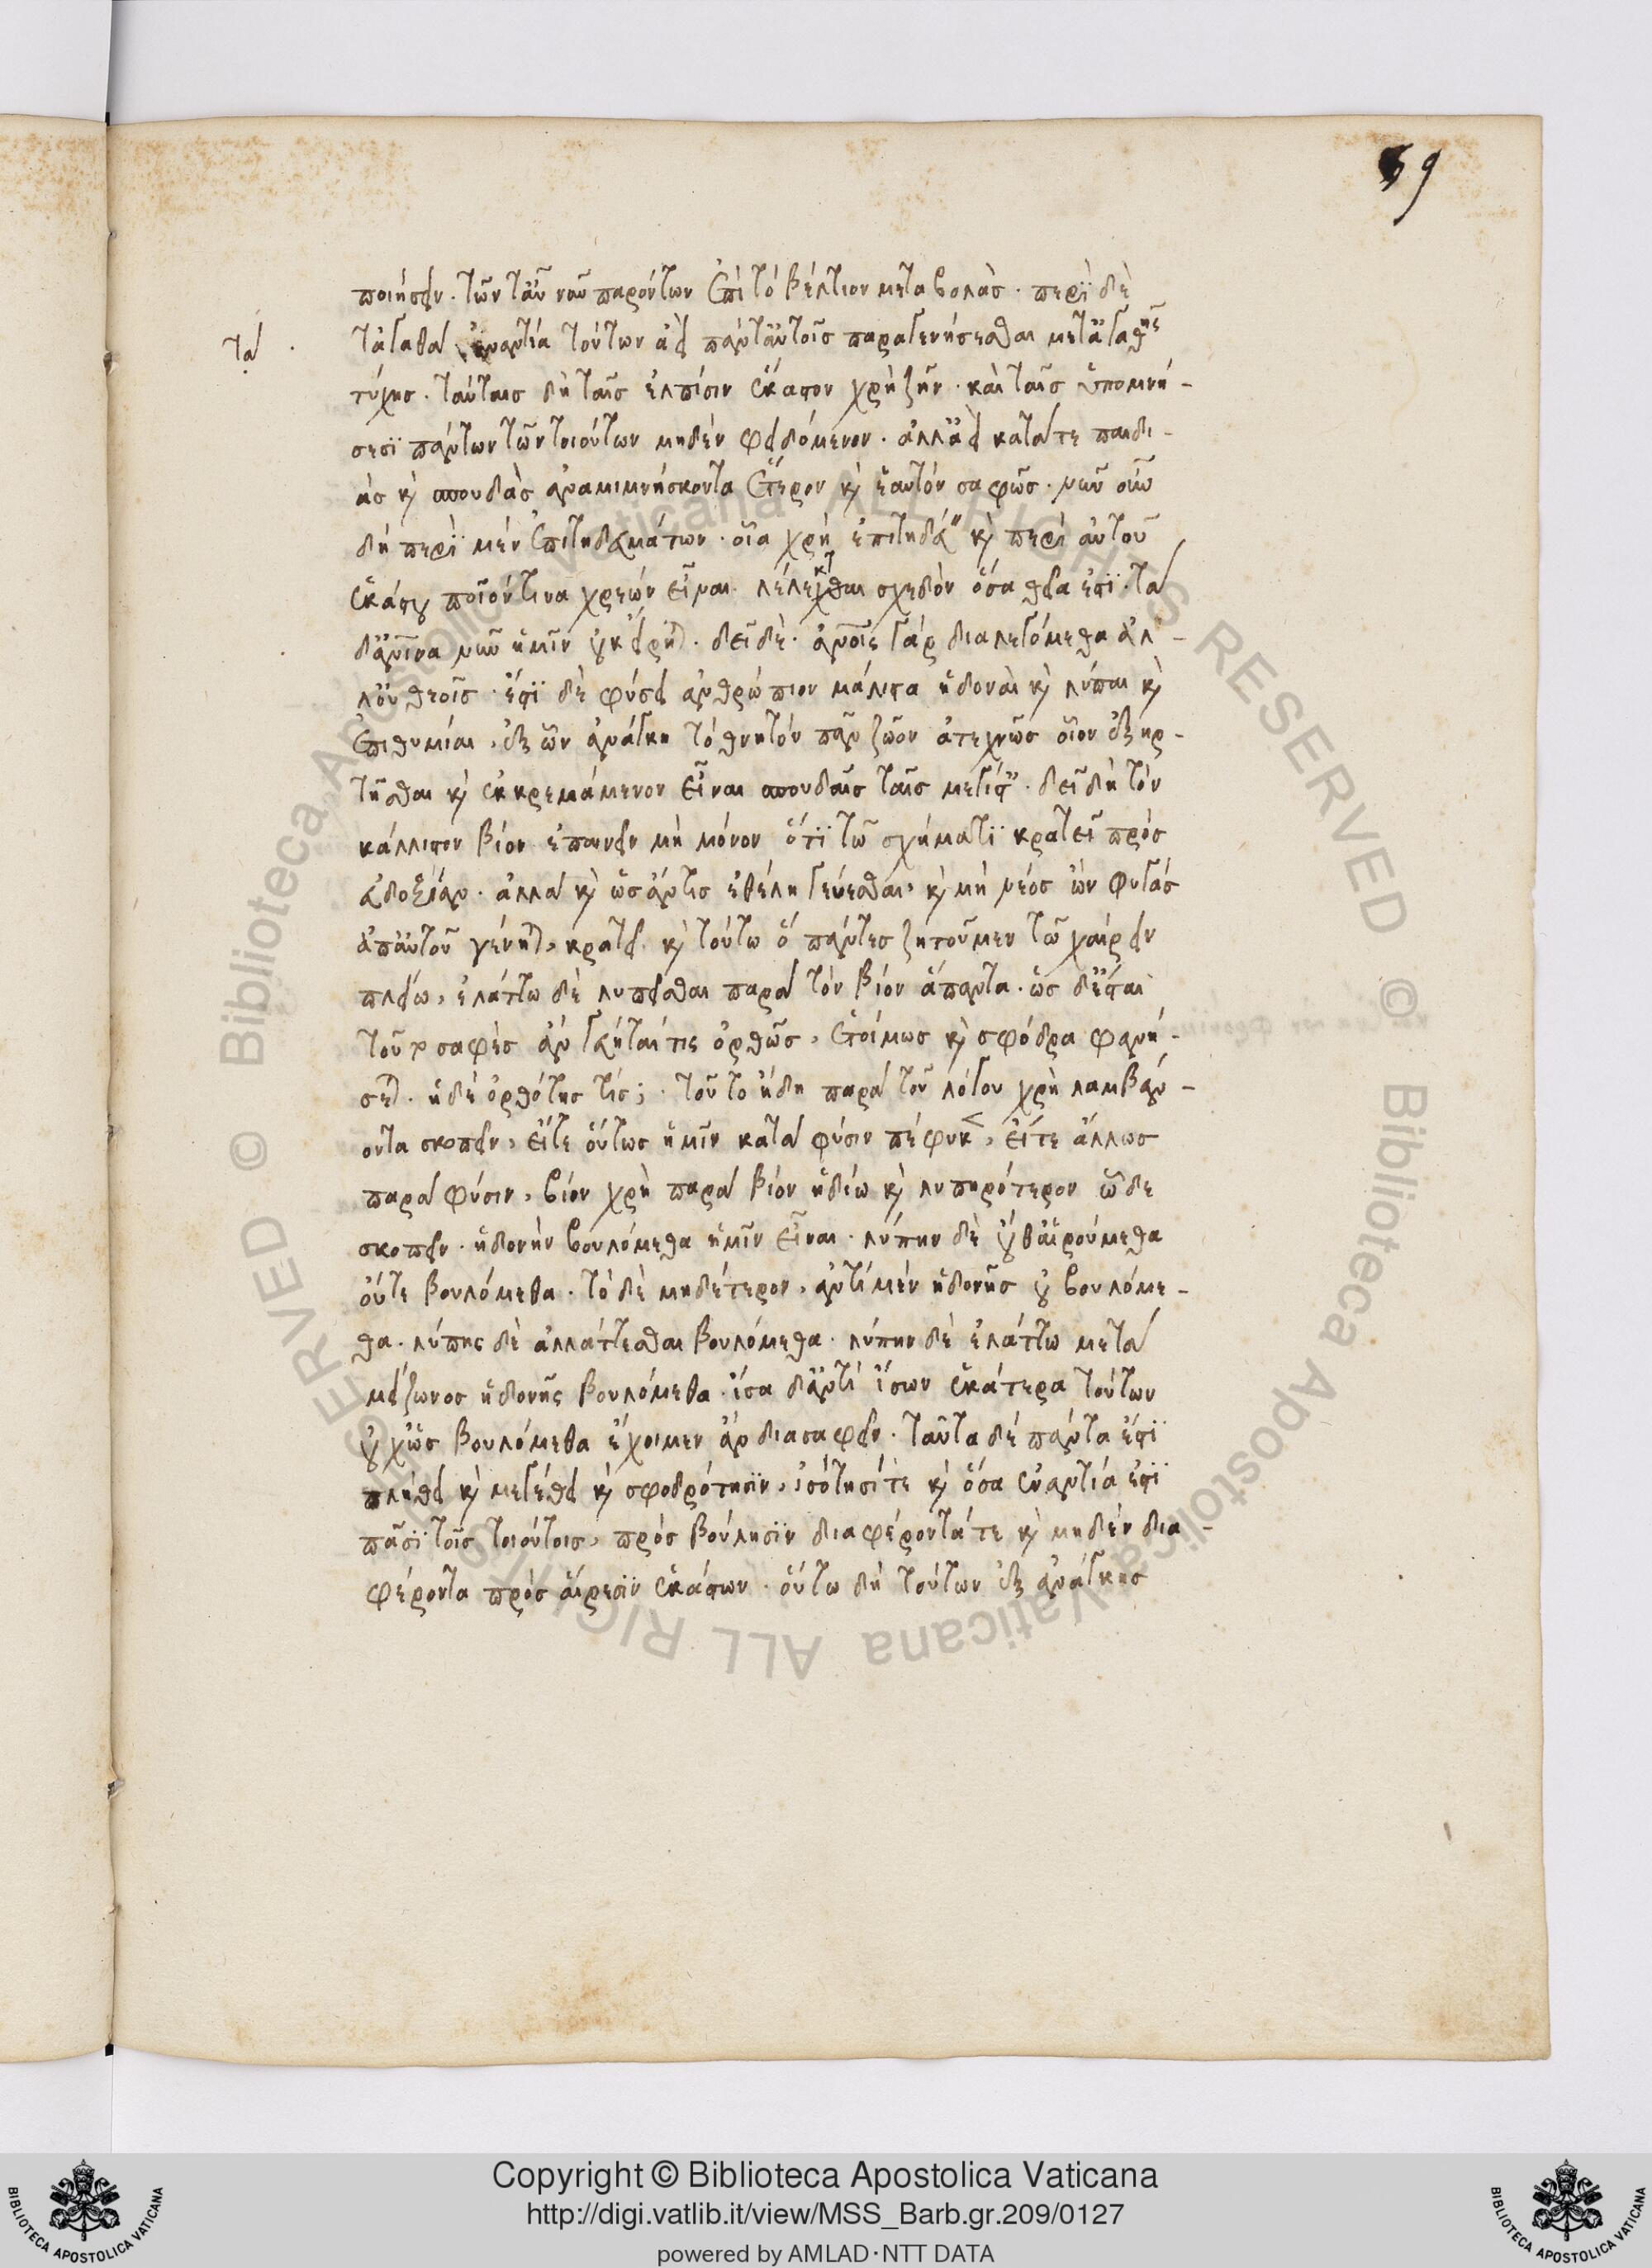 59
ποιήσειν. τῶν τ' αὖ νῦν παρόντων ἐπὶ τὸ βέλτιον μεταβολὰς. περὶ δὲ
τὰ
τἀγαθὰ ἐναντία τούτων ἀεὶ πάντ' αὐτοῖς παραγενήσεσθαι μετ' ἀγαθῆς
τύχης. ταύταις δὴ ταῖς ἐλπίσιν ἕκαστον χρὴ ζῆν. καὶ ταῖς ὑπομνή-
σεσι πάντων τῶν τοιούτων μηδὲν φειδόμενον. ἀλλ' ἀεὶ κατά τε παιδι-
ὰς κ̀ σπουδὰς ἀναμιμνήσκοντα ἕτερον κ̀ ἑαυτόν σαφῶς. νῦν οὖν
δὴ περὶ μὲν ἐπιτηδευμάτων. οἷα χρὴ ἐπιτηδεύ" κ̀ περὶ αὐτοῦ
ἑκάστου ποῖόν τινα χρεών εἶναι. λέλεκται σχεδὸν ὅσα θεῖά ἐστι. τὰ
δ' ἀνθρώπινα νῦν ἡμῖν οὐκ εἴρηται. δεῖ δὲ. ἀνθρώποις γάρ διαλεγόμεθα ἀλ-
λ' οὐ θεοῖς. ἔστι δὲ φύσει ἀνθρώπιον μάλιστα ἡδοναὶ κ̀ λύπαι κ̀
ἐπιθυμίαι, ἐξ ὧν ἀνάγκη τὸ θνητόν πᾶν ζῶον ἀτεχνῶς οἷον ἐξηρ-
τῆσθαι κ̀ ἐκκρεμάμενον εἶναι σπουδαῖς ταῖς μεγίσταις. δεῖ δὴ τὸν
κάλλιστον βίον ἐπαινεῖν μὴ μόνον ὅτι τῶ σχήματι κρατεῖ πρὸς
εὐδοξίαν. ἀλλὰ κ̀ ὡς ἄν τις ἐθέλη γεύεσθαι, κ̀ μὴ νέος ὢν φυγάς
ἀπ' αὐτοῦ γένηται, κρατεῖ κ̀ τούτω ὃ πάντες ζητοῦμεν τῶ χαίρειν
πλείω, ἐλάττω δὲ λυπεῖσθαι παρὰ τὸν βίον ἅπαντα. ὡς δ' ἔσται
τοῦτο σαφὲς ἂν γεύηταί τις ὀρθῶς, ἑτοίμως κ̀ σφόδρα φανή-
σεται. ἡ δὲ ὀρθότης τίς; τοῦτο ἤδη παρὰ τοῦ λόγου χρὴ λαμβάν-
οντα σκοπεῖν, εἴτε οὕτως ἡμῖν κατὰ φύσιν πέφυκε, εἴτε ἄλλως
παρὰ φύσιν, βίον χρὴ παρὰ βίον ἡδίω κ̀ λυπηρότερον ὧδε
σκοπεῖν. ἡδονὴν βουλόμεθα ἡμῖν εἶναι. λύπην δὲ οὔθ' αἱρούμεθα
οὔτε βουλόμεθα. τὸ δὲ μηδέτερον, ἀντὶ μέν ἡδονῆς οὐ βουλόμε-
θα. λύπης δὲ ἀλλάττεσθαι βουλόμεθα. λύπην δὲ ἐλάττω μετὰ
μείζωνος ἡδονῆς βουλόμεθα. ἴσα δ' ἀντὶ ἴσων ἑκάτερα τούτων
οὐχ ὡς βουλόμεθα ἔχοιμεν ἂν διασαφεῖν. ταῦτα δέ πάντα ἐστὶ
πλήθει κ̀ μεγέθει κ̀ σφοδρότησιν, ἰσότησί τε κ̀ ὅσα ἐναντία ἐστὶ
πᾶσι τοῖς τοιούτοις, πρὸς βούλησιν διαφέροντά τε κ̀ μηδέν δια-
φέροντα πρὸς αἵρεσιν ἑκάστων. οὕτω δὴ τούτων ἐξ ἀνάγκης
Copyright © Biblioteca Apostolica Vaticana
http://digi.vatlib.it/view/MSS_Barb.gr.209/0127
powered by AMLAD·NTT DATA
BIBLIOTECA APOSTOLICA VATICANA
BIBLIOTECA APOSTOLICA VATICANA
© Biblioteca Apostolica Vaticana ALL RIGHTS RESERVED © Biblioteca Apostolica Vaticana ALL RIGHTS RESERVED